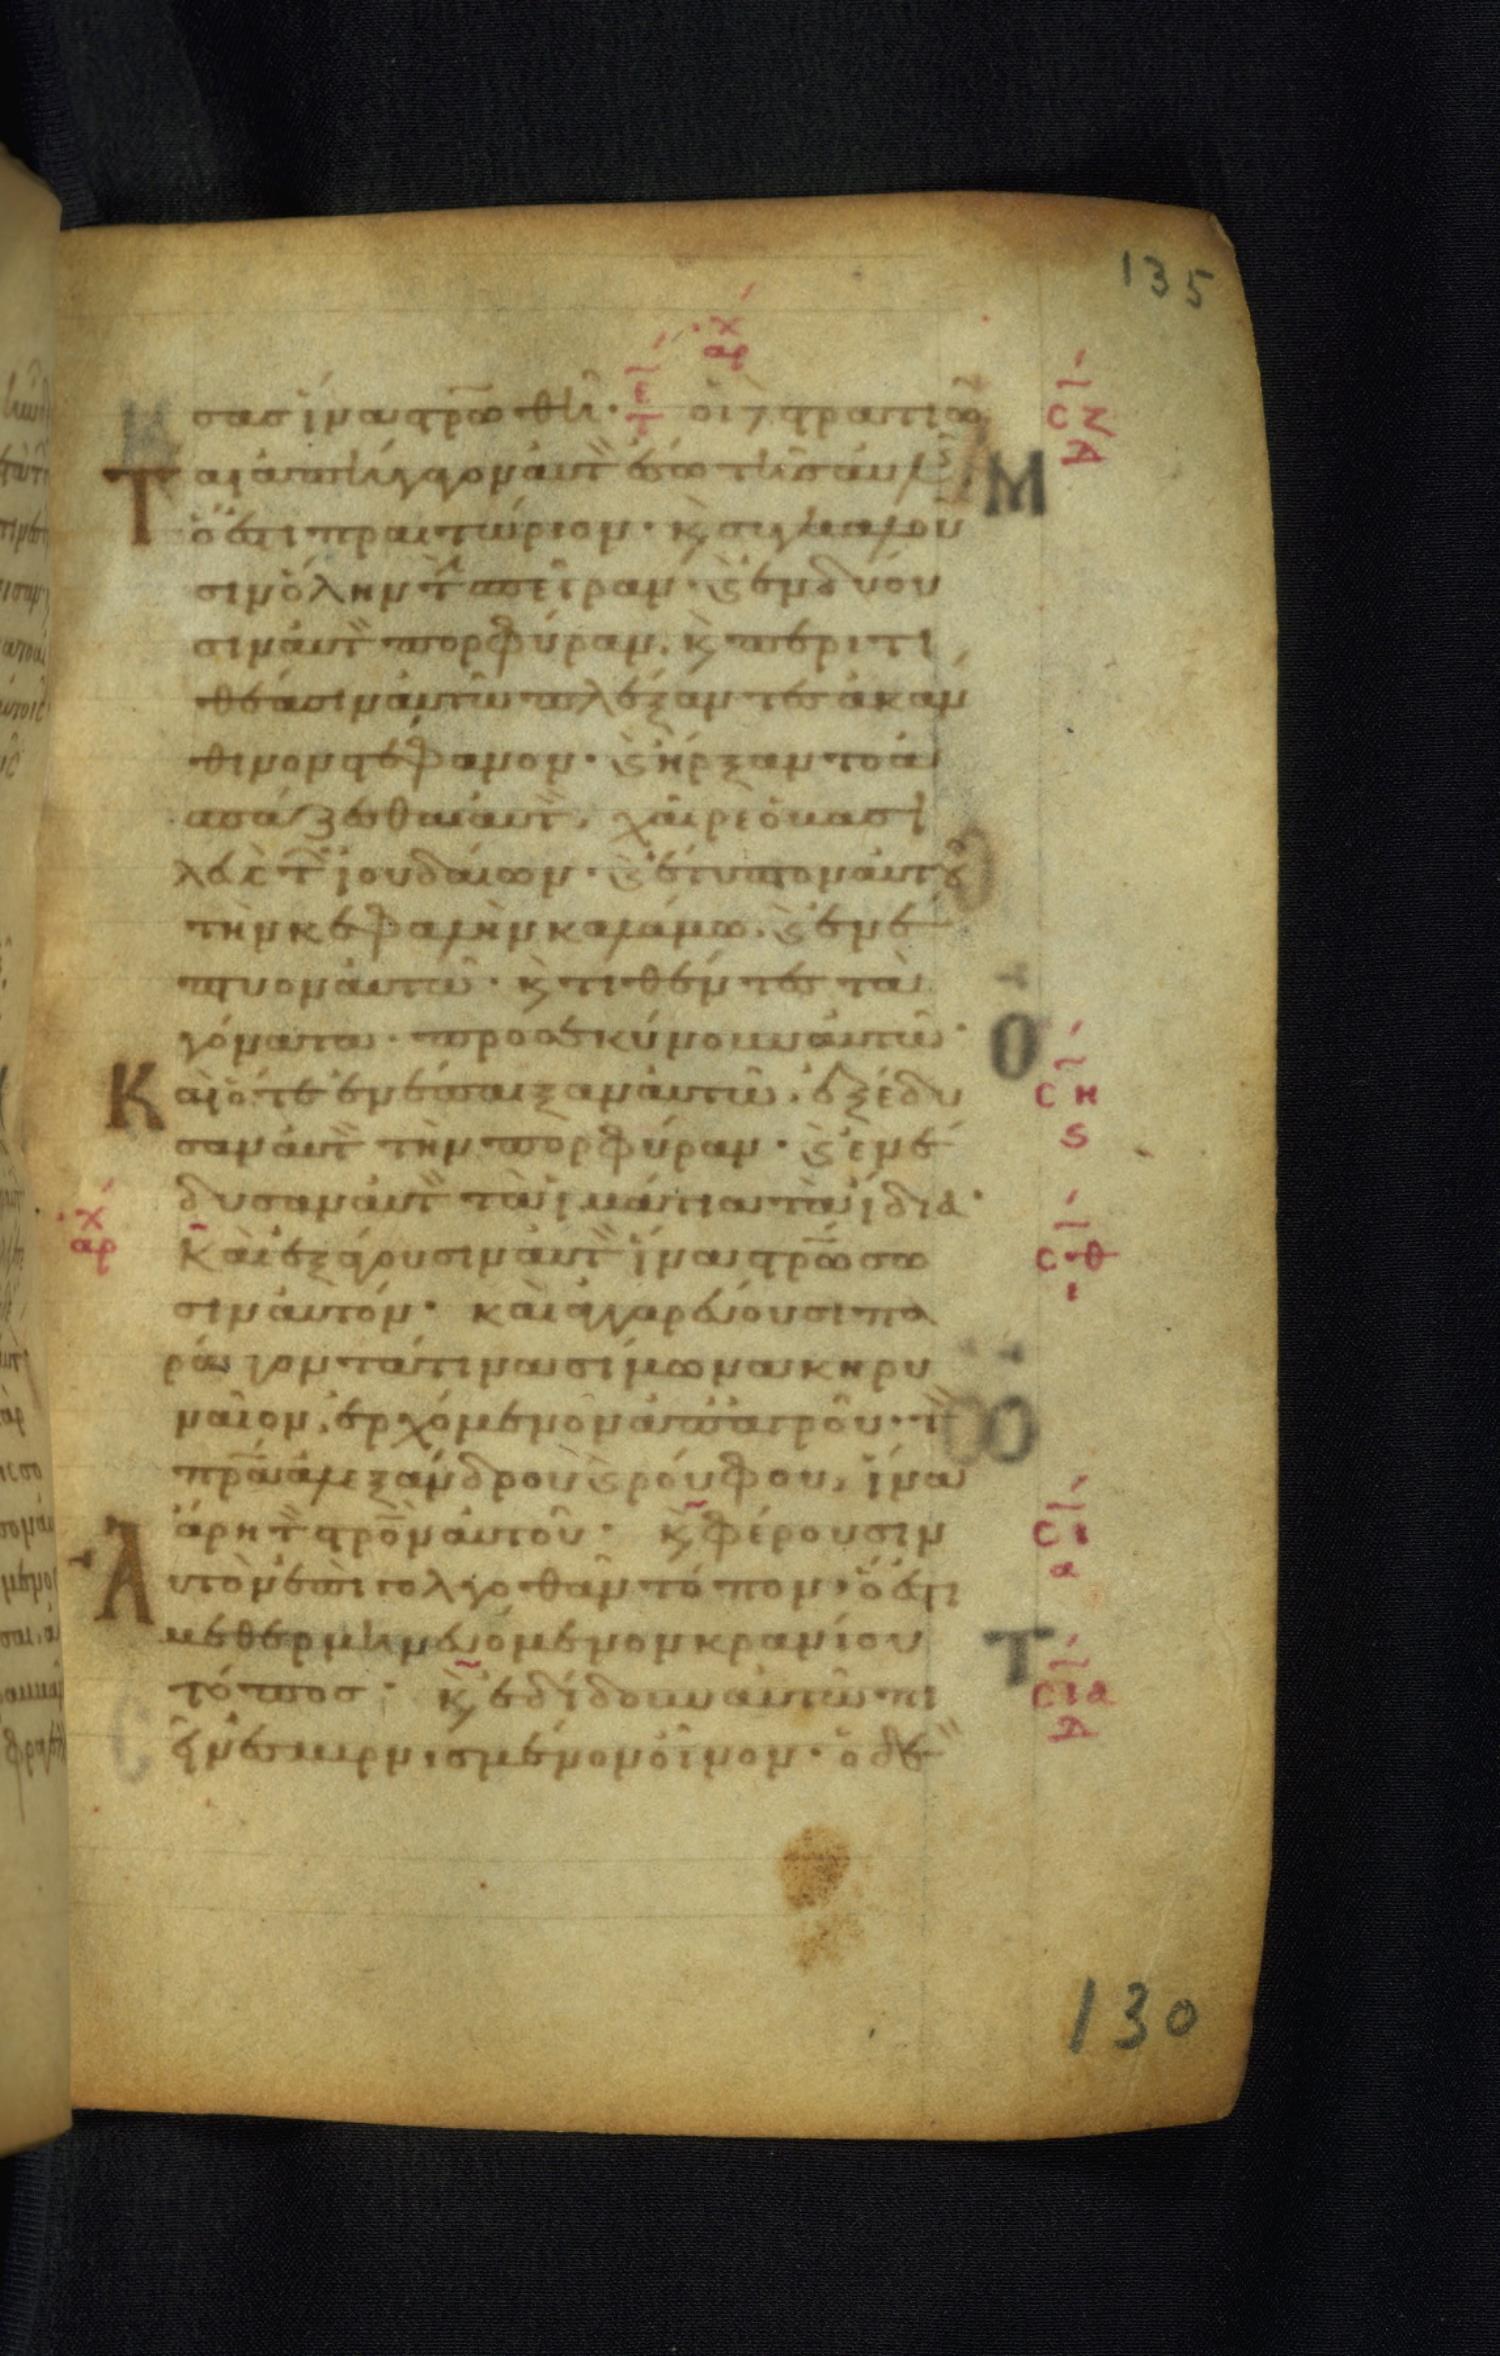 135
χ
αρ
σας ἵνα στρω̅θῆ · τε̅ οἱ δ̀ στρατιω̂
Ται ἀπήγαγον ἀυτ̀ ἔσω τῆς αυλῆς
ὅ ἐστι πραιτώριον · κ̀ συγκαλοῦ
σιν ὅλην τ̀ σπεῖραν · κ̀ ἐνδύου
σιν ἀυτ̀ πορφύραν · κ̀ περιτι
θέασιν ἀυτῶ πλέξαντες ἀκάν
θινον στέφανον · κ̀ ἤρξαντο ἀ
σπάζεσθαι ἀυτ̀ · χαῖρε ὁ βασι
λεὺς τ̀ ἰουδαίων · κ̀ ἔτυπτον ἀυτοῦ
τὴν κεφαλὴν καλάμω · κ̀ ἐνέ
πτυον ἀυτῶ · κ̀ τιθέντες τὰ
γόνατα · προσεκύνουν ἀυτῶ ·
Και ὅτε ἐνέπαιξαν ἀυτῶ · ἐξέδυ
σαν ἀυτ̀ τὴν πορφύραν · κ̀ ἐνέ
δυσαν ἀυτ̀ τὰ ἱμάτια τὰ ἴδια ·
Καὶ ἐξάγουσιν ἀυτ̀ ἵνα στρω̅σω
σιν ἀυτόν · καὶ ἀγγαρεύουσι πα
ράγοντά τινα σίμωνα κηρυ
ναῖον, ἐρχόμενον ἀπὀ ἀγροῦ · τ̀
πρ̅α ἀλεξάνδρου κ̀ ρούφου, ἵνα
ἄρη τ̀ στρο̅ν ἀυτοῦ · κ̀ φέρουσιν
Αυτὸν ἐπὶ γολγοθᾶν τόπον · ὅ ἐστι
μεθερμηνευόμενον κρανίου
τόπος · κ̀ ἐδίδουν ἀυτῶ πι
εῖν ἐσμυρνισμένον οἶνον · ὁ δὲ
χ
αρ
C Ζ
Δ
C Η
S
C Θ
Ι
C Ι
α
C Ι α
Δ
130